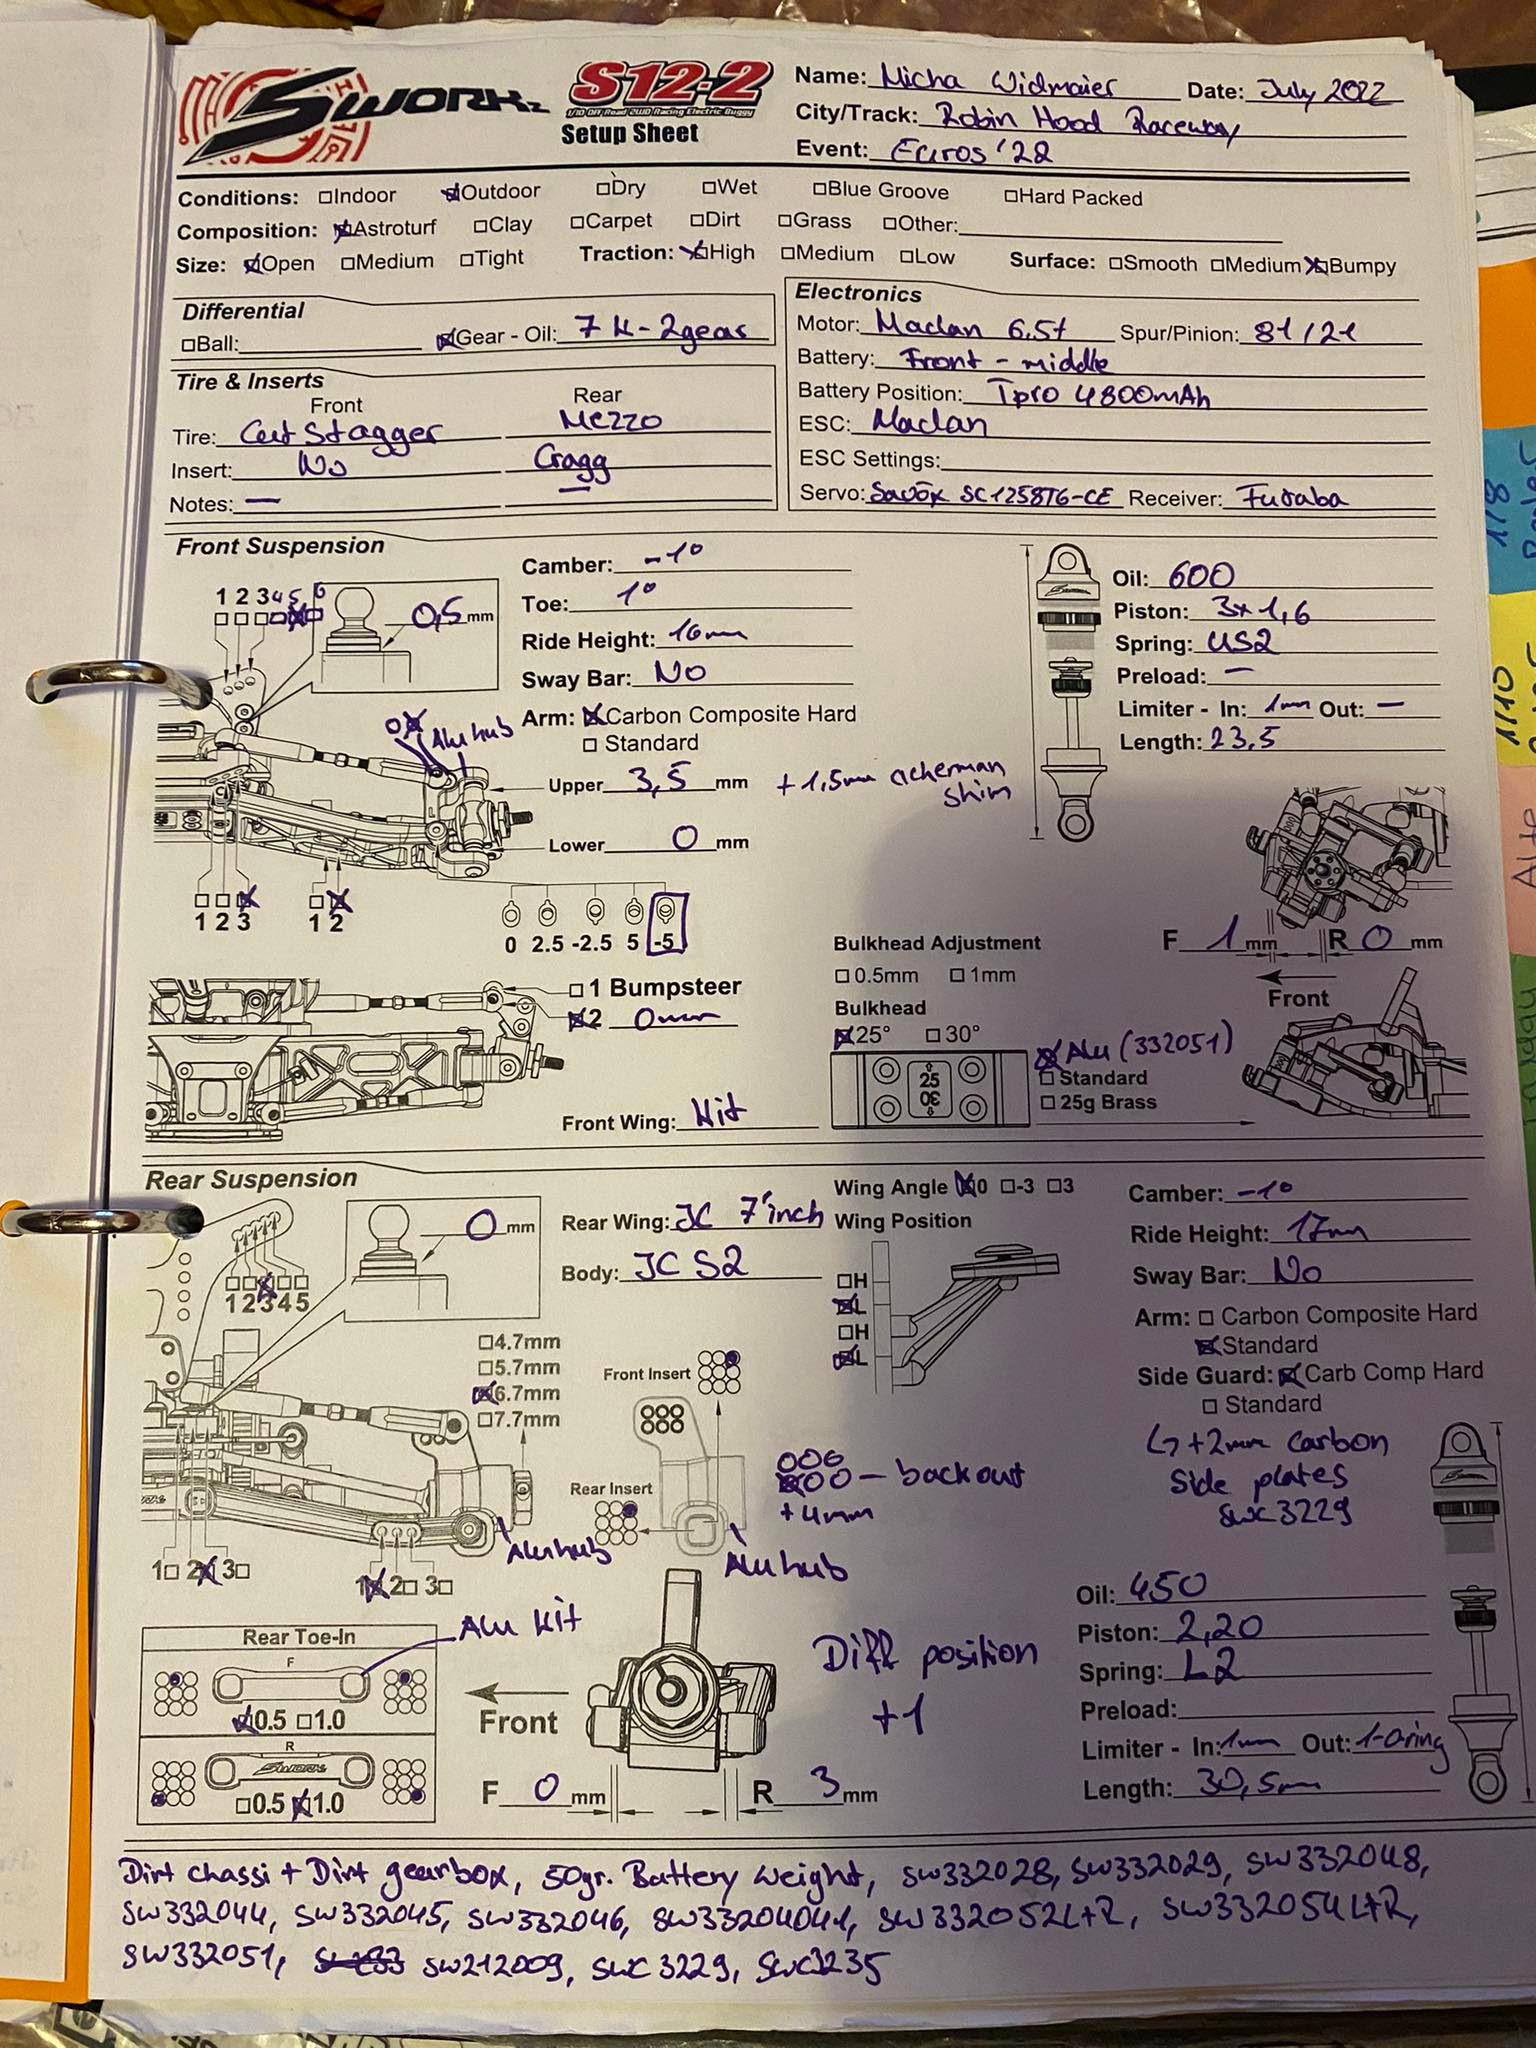 SWORKz S12-2 Name: Micha Widmaier Date: July 2022
1/10 Off Road 2WD Racing Electric Buggy
Setup Sheet City/Track: Robin Hood Raceway
Event: Euros '22
Conditions: □Indoor ☒Outdoor □Dry □Wet □Blue Groove □Hard Packed
Composition: ☒Astroturf □Clay □Carpet □Dirt □Grass □Other:
Size: ☒Open □Medium □Tight Traction: ☒High □Medium □Low Surface: □Smooth □Medium ☒Bumpy
Differential
□Ball: ☒Gear - Oil: 7K - 2gear
Tire & Inserts
Front Rear
Tire: Cut Stagger Mezzo
Insert: No Cragg
Notes: — —
Electronics
Motor: Maclan 6,5t Spur/Pinion: 81/21
Battery: Front - middle
Battery Position: Tpro 4800mAh
ESC: Maclan
ESC Settings:
Servo: Savöx SC1258TG-CE Receiver: Futaba
Front Suspension
1 2 3 4 5 6
0,5 mm
Camber: -1°
Toe: 1°
Ride Height: 16mm
Sway Bar: No
Arm: ☒Carbon Composite Hard
□ Standard
Alu hub
Upper 3,5 mm +1,5mm ackerman shim
Lower 0 mm
1 2 3 1 2
0 2.5 -2.5 5 -5
Oil: 600
Piston: 3x1,6
Spring: US2
Preload: —
Limiter - In: 1mm Out: —
Length: 23,5
F 1 mm R 0 mm
Front
Bulkhead Adjustment
□ 0.5mm □ 1mm
Bulkhead
☒25° □30°
25
30
☒Alu (332051)
□ Standard
□ 25g Brass
□ 1 Bumpsteer
☒2 0mm
Front Wing: Kit
Rear Suspension
0 mm
1 2 3 4 5
Rear Wing: JC 7"inch
Body: JC S2
Wing Angle ☒0 □-3 □3
Wing Position
□H
☒L
□H
☒L
Camber: -1°
Ride Height: 17mm
Sway Bar: No
Arm: □ Carbon Composite Hard
☒Standard
Side Guard: ☒Carb Comp Hard
□ Standard
↳ +2mm carbon
side plates
SWC3229
□4.7mm
□5.7mm
☒6.7mm
□7.7mm
Front Insert
Rear Insert
- back out
+4mm
Alu hub
Alu hub
1□ 2☒ 3□
1☒ 2□ 3□
Alu Kit
Rear Toe-In
F
☒0.5 □1.0
R
SWORKz
□0.5 ☒1.0
Front
F 0 mm R 3 mm
Diff position
+1
Oil: 450
Piston: 2,20
Spring: L2
Preload:
Limiter - In: 1mm Out: 1-oring
Length: 30,5mm
Dirt chassi + Dirt gearbox, 50gr. Battery weight, SW332028, SW332029, SW332048,
SW332044, SW332045, SW332046, SW33204041, SW332052L+R, SW332054L+R,
SW332051, SW212009, SWC3229, SWC3235
1/8
1/10
Alte